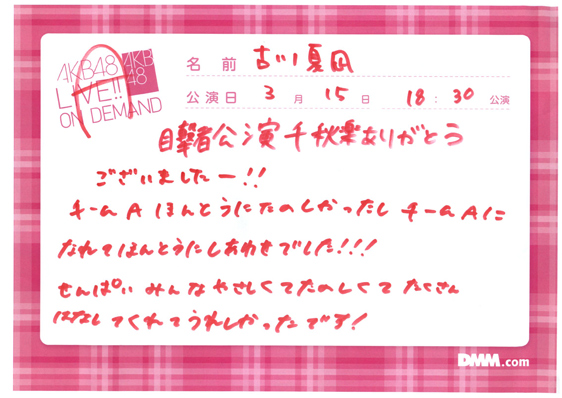 AKB48
LIVE!!
ON DEMAND
AKB
48
A
名前 古川夏凪
公演日 3月15日 18:30公演
目撃者公演千秋楽ありがとう
ございましたー!!
チームA ほんとうにたのしかったし チームAに
なれてほんとうにしあわせでした!!!
せんぱい みんなやさしくてたのしくて たくさん
はなしてくれてうれしかったです!
DMM.com